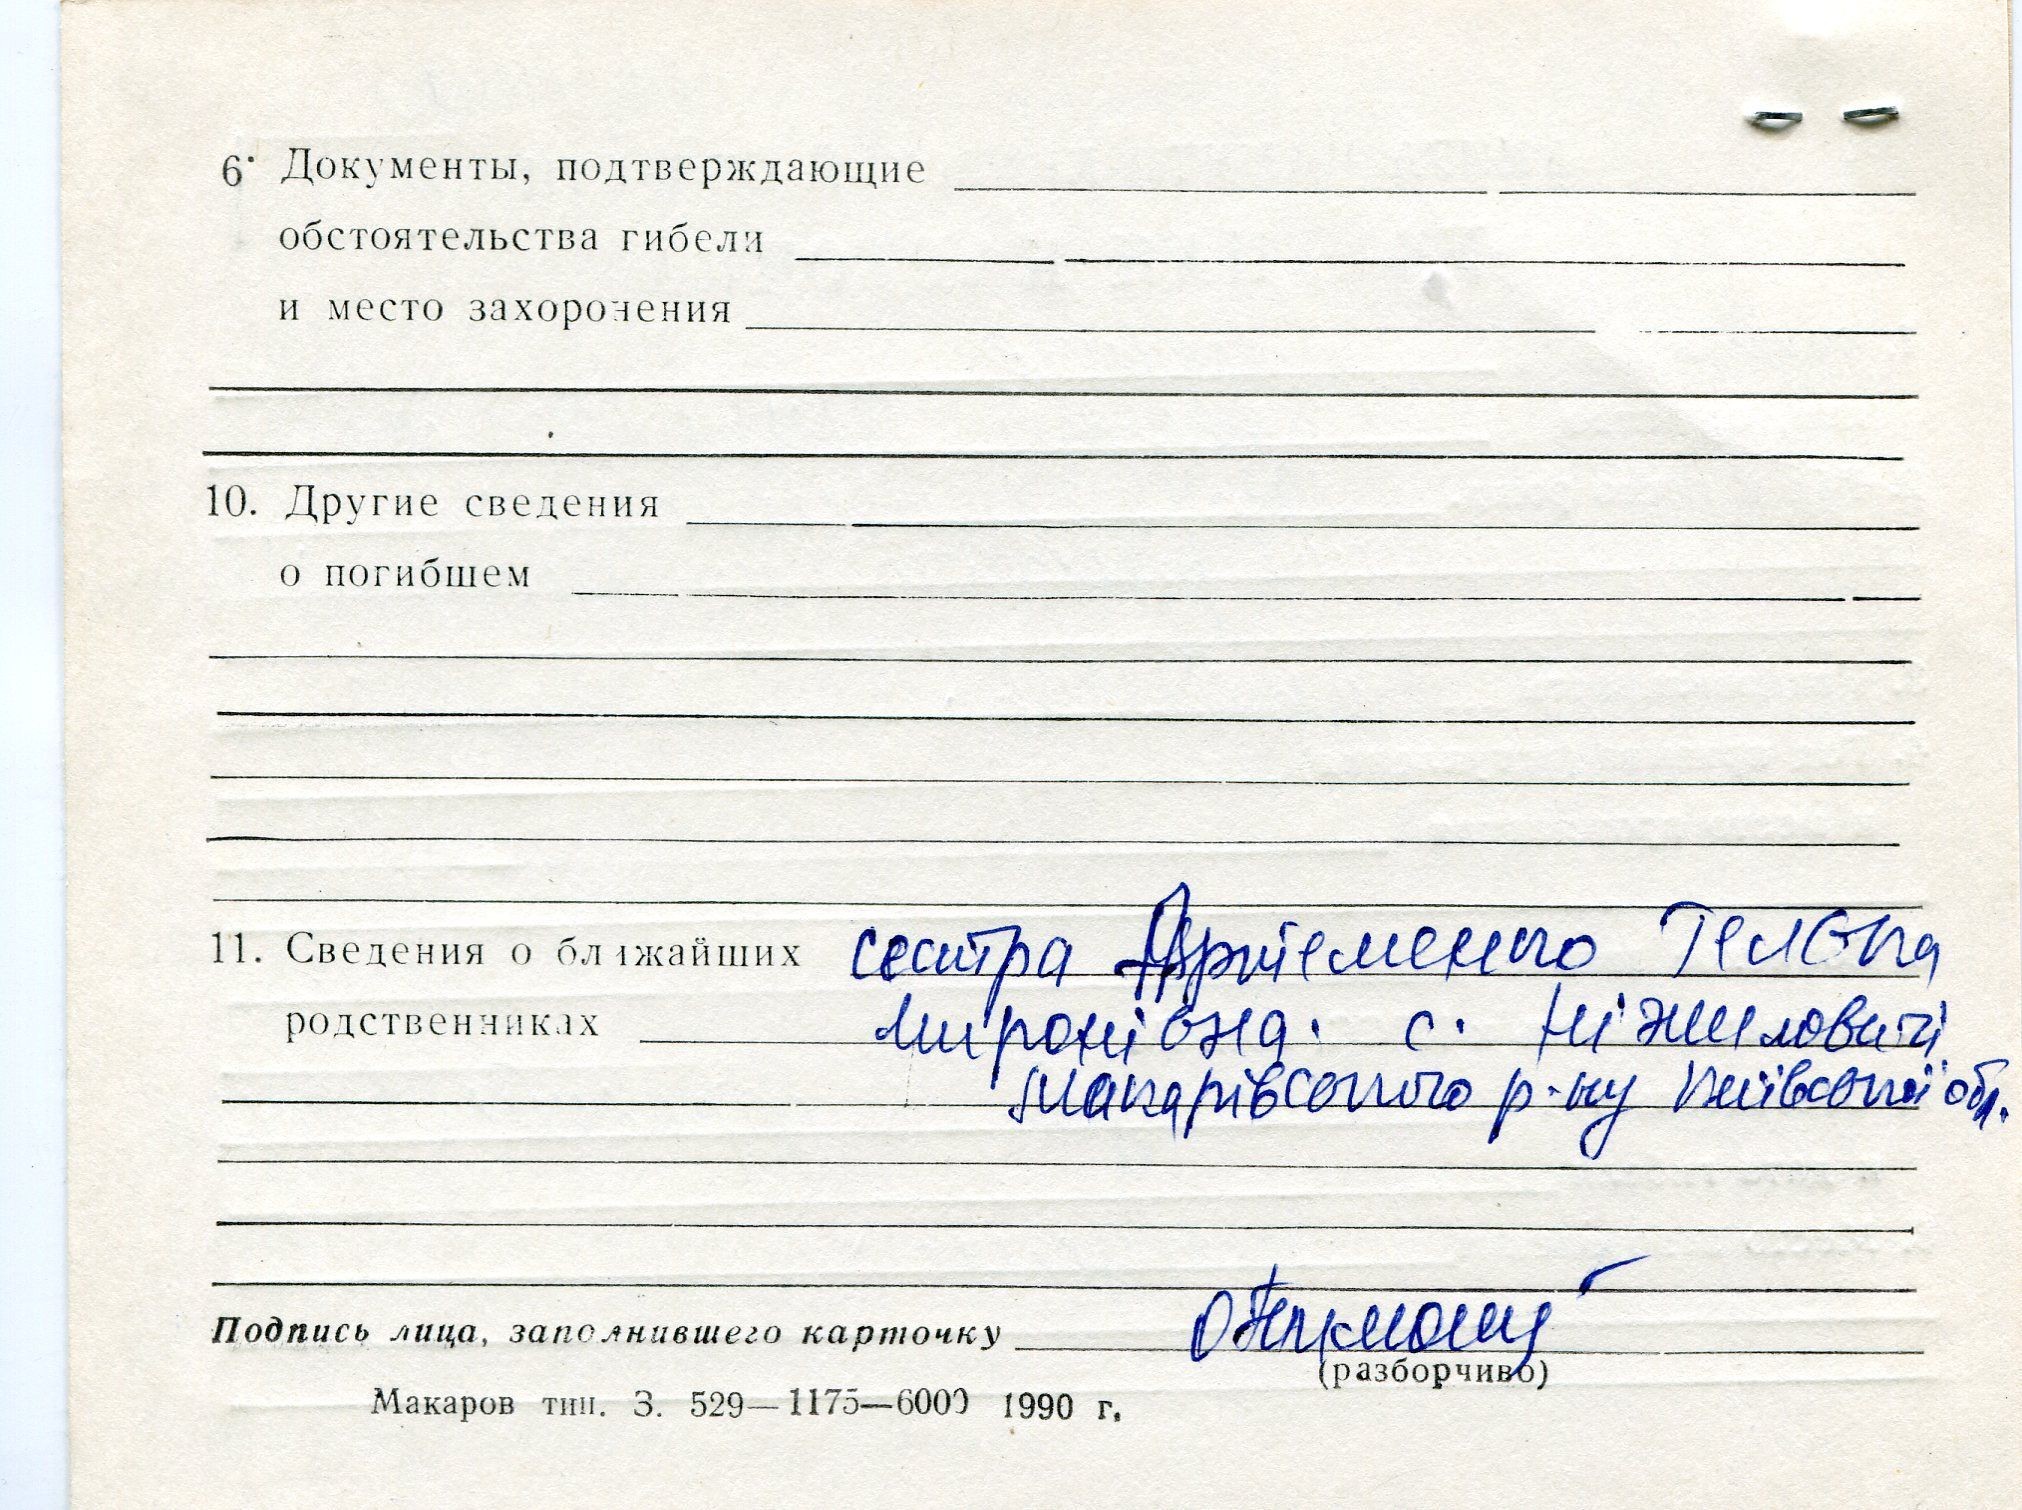 6. Документы, подтверждающие
обстоятельства гибели
и место захоронения
10. Другие сведения
о погибшем
11. Сведения о ближайших сестра Артеменко Текла
родственниках Миронівна. с. Ніжиловичі
Макарівського р-ну Київської обл.
Подпись лица, заполнившего карточку
(разборчиво)
Макаров тип. З. 529—1175—6000 1990 г.